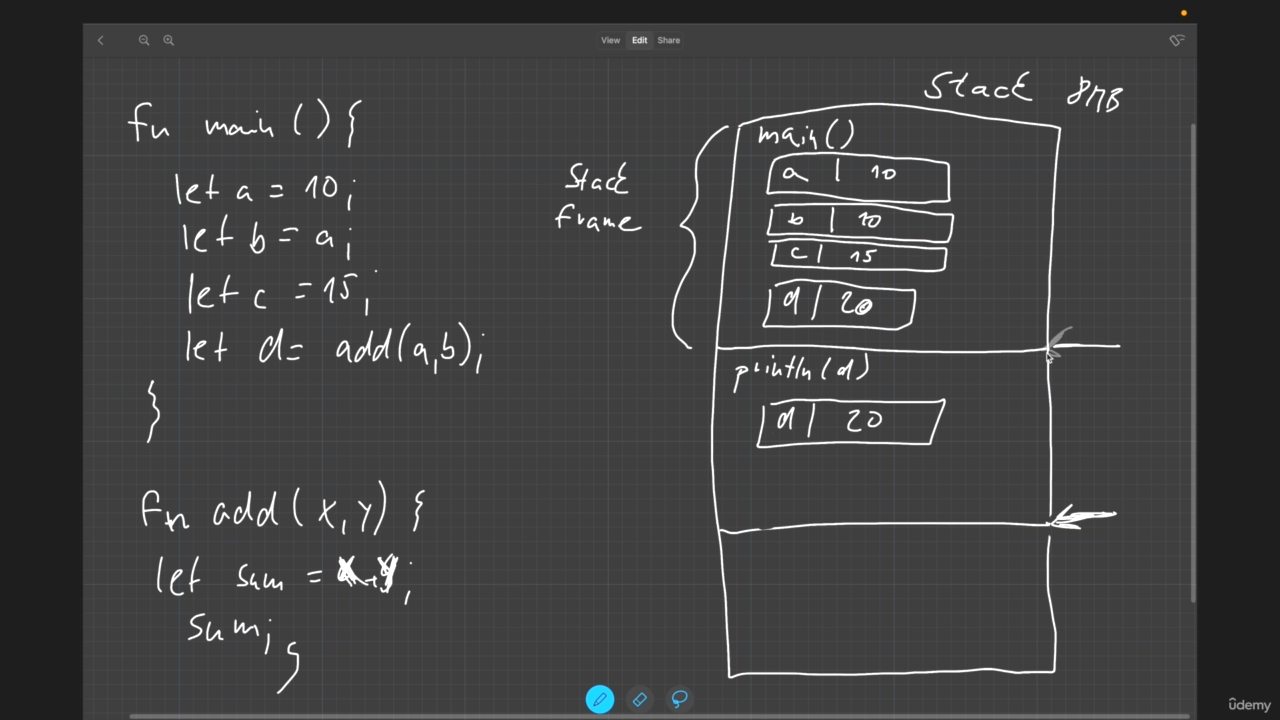 View Edit Share
fn main () {
let a = 10;
let b = a;
let c = 15;
let d = add(a,b);
}
fn add(x,y) {
let sum = x+y;
sum;
}
Stack 8MB
Stack
frame
main()
a | 10
b | 10
c | 15
d | 20
println(d)
d | 20
ûdemy